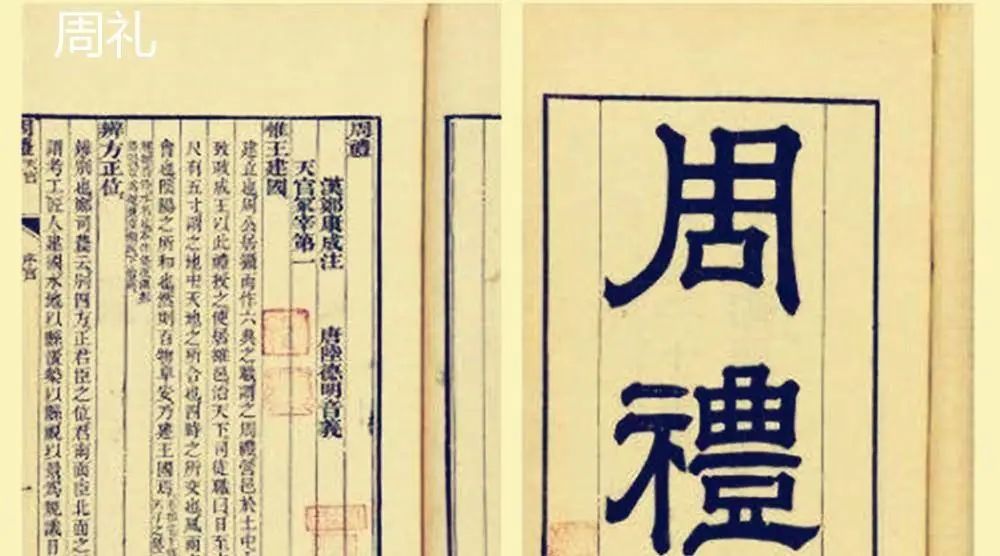 周礼
周禮
漢鄭康成注 唐陸德明音義
天官冢宰第一
惟王建國
建立也周公居攝而作六典之職謂之周禮營邑於土中
致政成王以此禮授之使居雒邑治天下司徒職曰日至
尺有五寸謂之地中天地之所合也四時之所交也風雨
會也陰陽之所和也然則百物阜安乃建王國焉
辨方正位
辨別也鄭司農云別四方正君臣之位君南面臣北面之
謂考工匠人建國水地以縣置槷以縣眡以景爲規識日
周禮 天官 序官 一
周禮